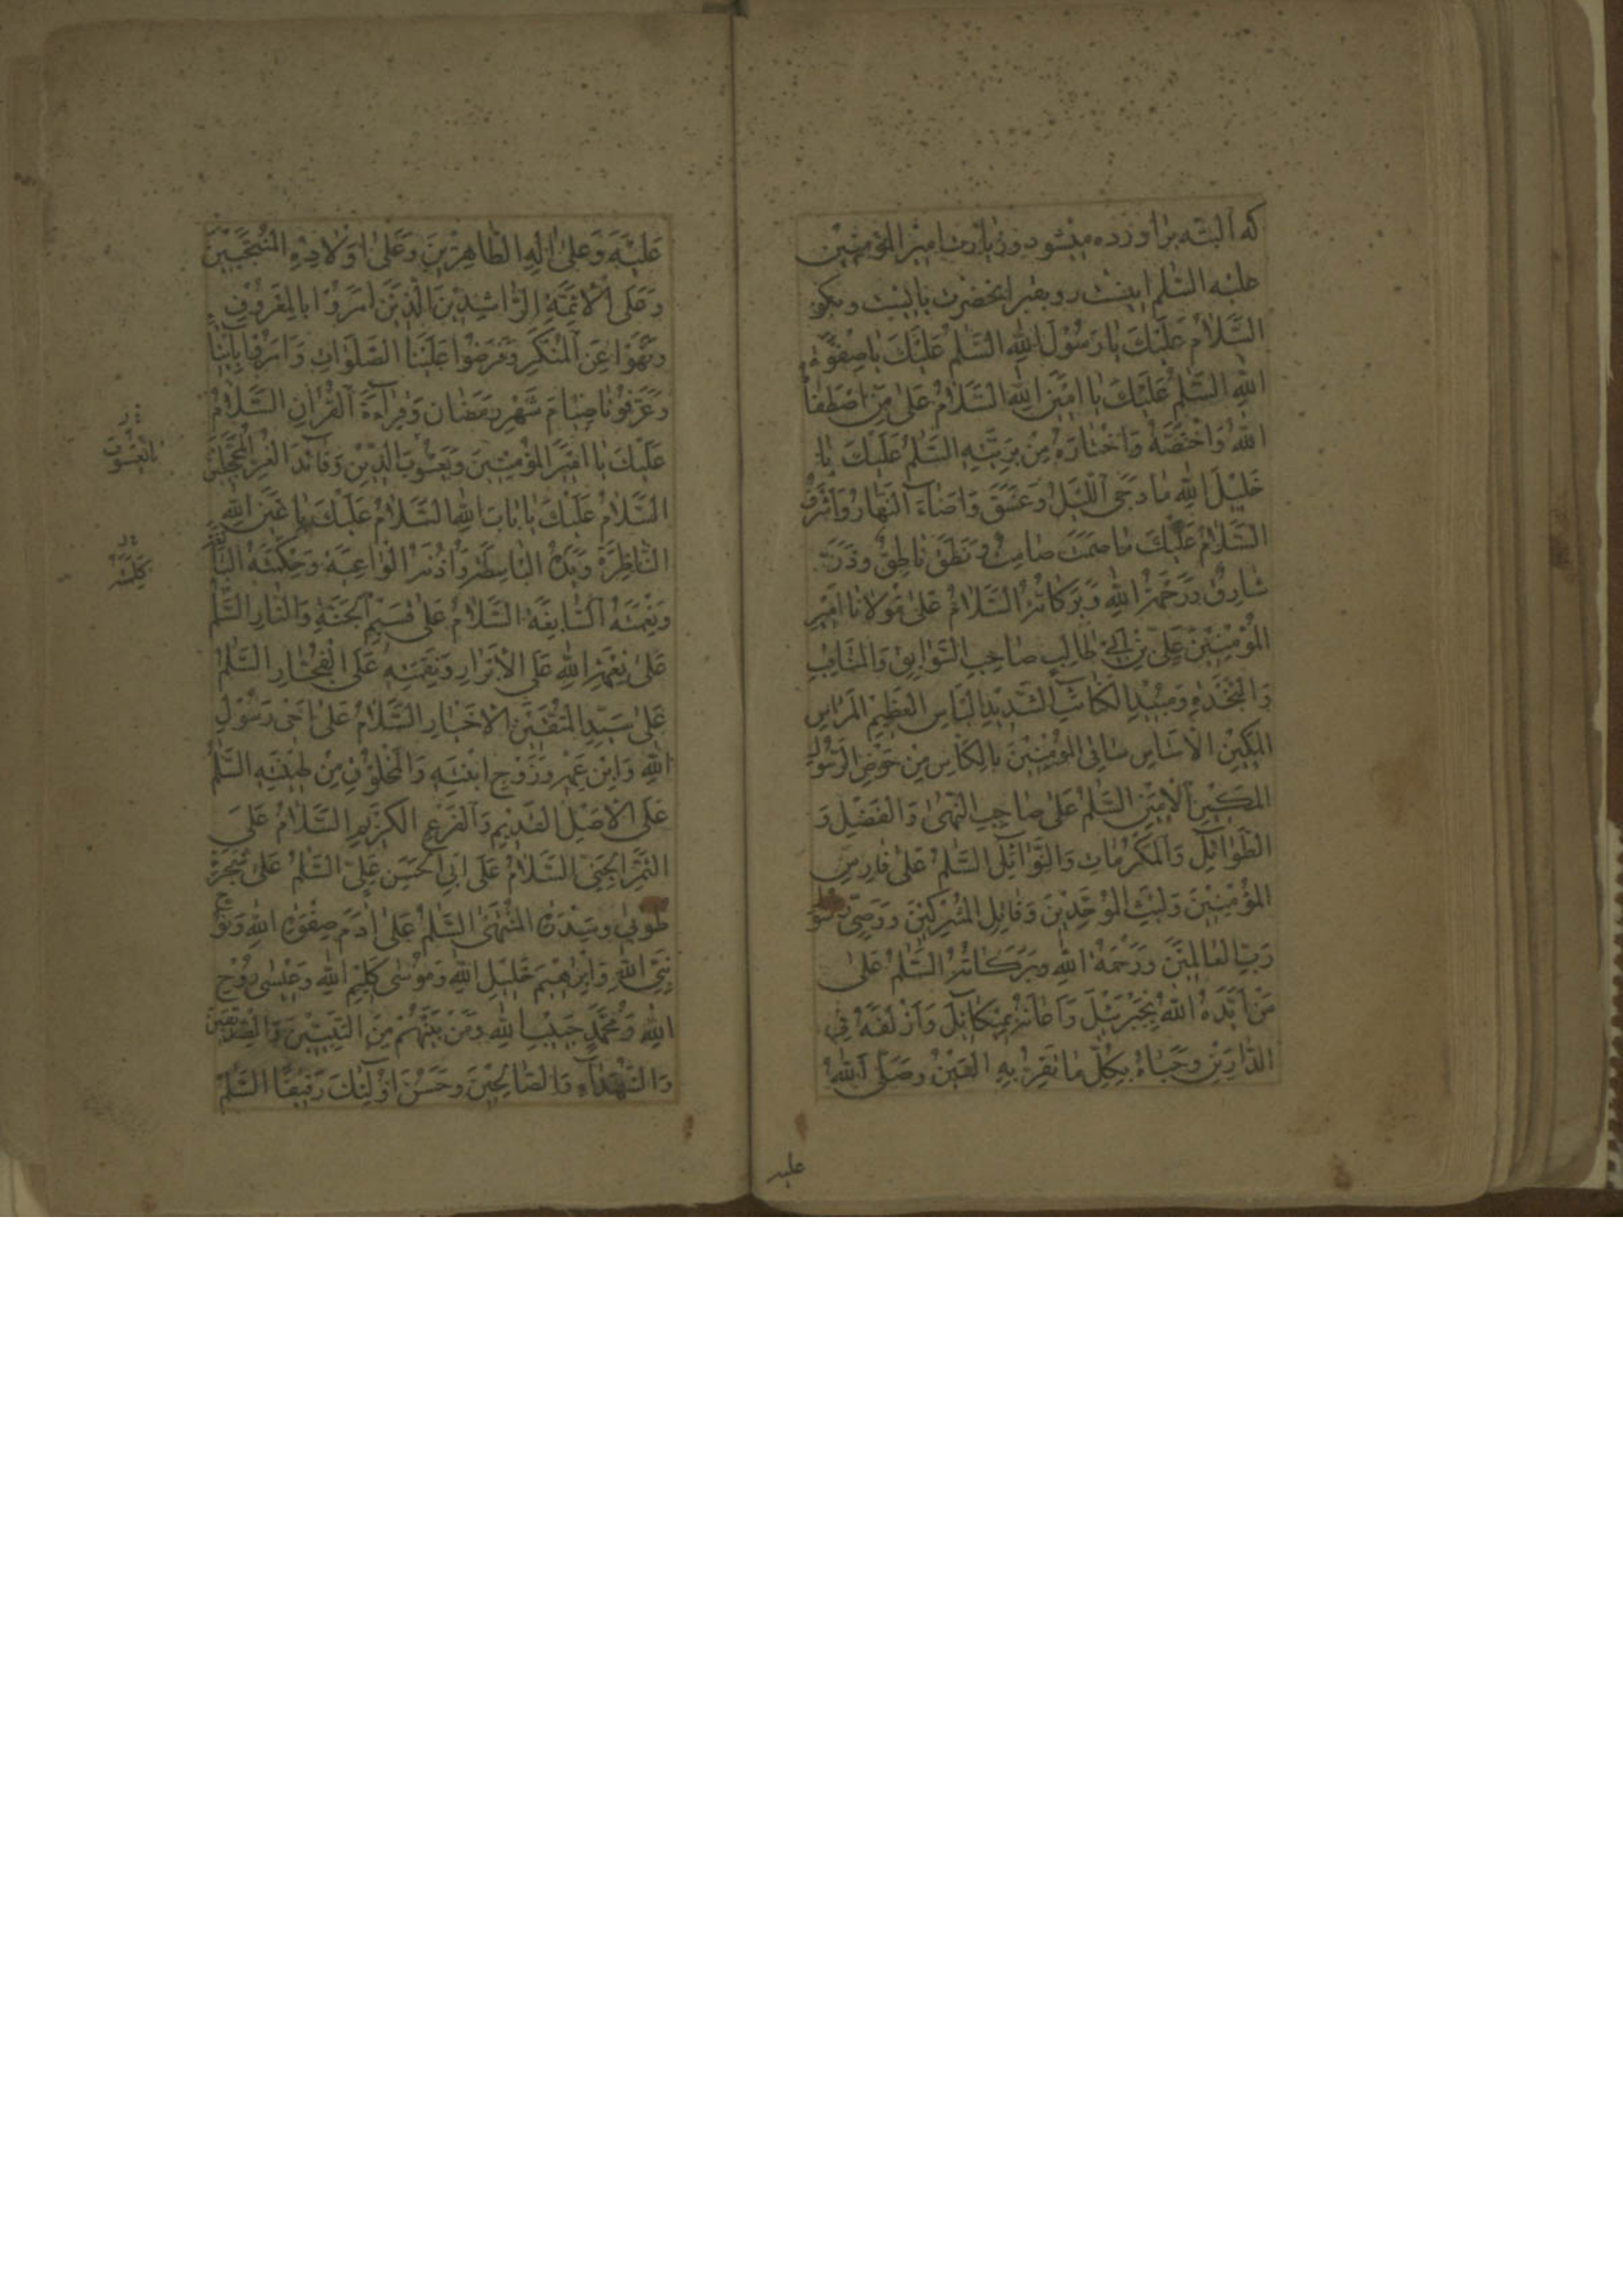 که البته براورده میشود و زیارت امیر المؤمنین
علیه السلم اینست رو بقبر انحضرت بایست و بکو
السَّلامُ عَلَیْكَ یا رَسُولَ اللهِ السَّلمُ عَلَیْكَ یا صِفْوَةَ
اللهِ السَّلمُ عَلَیْكَ یا اَمینَ اللهِ السَّلامُ عَلی مَنِ اصْطَفاهُ
اللهُ وَاخْتَصَّهُ وَاخْتارَهُ مِنْ بَرِیَّتِهِ السَّلمُ عَلَیْكَ یا
خَلیلَ اللهِ ما دَجَی اللَّیْلُ وَغَسَقَ وَاَضاءَ النَّهارُ وَاَشْرَقَ
السَّلامُ عَلَیْكَ ما صَمَتَ صامِتٌ وَنَطَقَ ناطِقٌ وَذَرَّ
شارِقٌ وَرَحْمَةُ اللهِ وَبَرَکاتُهُ السَّلامُ عَلی مَوْلانا اَمیرِ
الْمُؤْمِنینَ عَلِیِّ بْنِ اَبی طالِبٍ صاحِبِ السَّوابِقِ وَالْمَناقِبِ
وَالنَّجْدَةِ وَمُبیدِ الْکَتائِبِ الشَّدیدِ الْبَاْسِ الْعَظیمِ الْمِراسِ
الْمَکینِ الْاَساسِ ساقِی الْمُؤْمِنینَ بِالْکَاْسِ مِنْ حَوْضِ الرَّسُولِ
الْمَکینِ الْاَمینِ السَّلمُ عَلی صاحِبِ النُّهی وَالْفَضْلِ وَ
الطَّوائِلِ وَالْمَکْرُماتِ وَالنَّوائِلِ السَّلمُ عَلی فارِسِ
الْمُؤْمِنینَ وَلَیْثِ الْمُوَحِّدینَ وَقاتِلِ الْمُشْرِکینَ وَوَصِیِّ رَسُولِ
رَبِّ الْعالَمینَ وَرَحْمَةُ اللهِ وَبَرَکاتُهُ السَّلمُ عَلی
مَنْ اَیَّدَهُ اللهُ بِجَبْرَئیلَ وَاَعانَهُ بِمیکائیلَ وَاَزْلَفَهُ فِی
الدّارَیْنِ وَحَباهُ بِکُلِّ ما تَقِرُّ بِهِ الْعَیْنُ وَصَلَّی اللهُ
علیه
عَلَیْهِ وَعَلی الِهِ الطّاهِرینَ وَعَلی اَوْلادِهِ الْمُنْتَجَبینَ
وَعَلَی الْاَئِمَّةِ الرّاشِدینَ الَّذینَ اَمَرُوا بِالْمَعْرُوفِ
وَنَهَوْا عَنِ الْمُنْکَرِ وَفَرَضُوا عَلَیْنَا الصَّلَواتِ وَاَمَرُوا بِاِیْتاءِ
وَعَرَّفُونا صِیامَ شَهْرِ رَمَضانَ وَقِراءَةَ الْقُرْانِ السَّلامُ
عَلَیْكَ یا اَمیرَ الْمُؤْمِنینَ وَیَعْسُوبَ الدّینِ وَقائِدَ الْغُرِّ الْمُحَجَّلینَ
السَّلامُ عَلَیْكَ یا بابَ اللهِ السَّلامُ عَلَیْكَ یا عَیْنَ اللهِ
النّاظِرَةَ وَیَدَهُ الْباسِطَةَ وَاُذُنَهُ الْواعِیَةَ وَحِکْمَتَهُ الْبالِغَةَ
وَنِعْمَتَهُ السّابِغَةَ السَّلامُ عَلی قَسیمِ الْجَنَّةِ وَالنّارِ السَّلمُ
عَلی نِعْمَةِ اللهِ عَلَی الْاَبْرارِ وَنِقْمَتِهِ عَلَی الْفُجّارِ السَّلمُ
عَلی سَیِّدِ الْمُتَّقینَ الْاَخْیارِ السَّلامُ عَلی اَخی رَسُولِ
اللهِ وَابْنِ عَمِّهِ وَزَوْجِ ابْنَتِهِ وَالْمَخْلُوقِ مِنْ طینَتِهِ السَّلمُ
عَلَی الْاَصْلِ الْقَدیمِ وَالْفَرْعِ الْکَریمِ السَّلامُ عَلَی
الثَّمَرِ الْجَنِیِّ السَّلامُ عَلی اَبِی الْحَسَنِ عَلِیٍّ السَّلمُ عَلی شَجَرَةِ
طُوبی وَسِدْرَةِ الْمُنْتَهی السَّلمُ عَلی ادَمَ صِفْوَةِ اللهِ وَنُوحٍ
نَبِیِّ اللهِ وَاِبْرهیمَ خَلیلِ اللهِ وَمُوسی کَلیمِ اللهِ وَعیسی رُوحِ
اللهِ وَمُحَمَّدٍ حَبیبِ اللهِ وَمَنْ بَیْنَهُمْ مِنَ النَّبِیّینَ وَالصِّدّیقینَ
وَالشُّهَداءِ وَالصّالِحینَ وَحَسُنَ اُولئِكَ رَفیقًا السَّلمُ